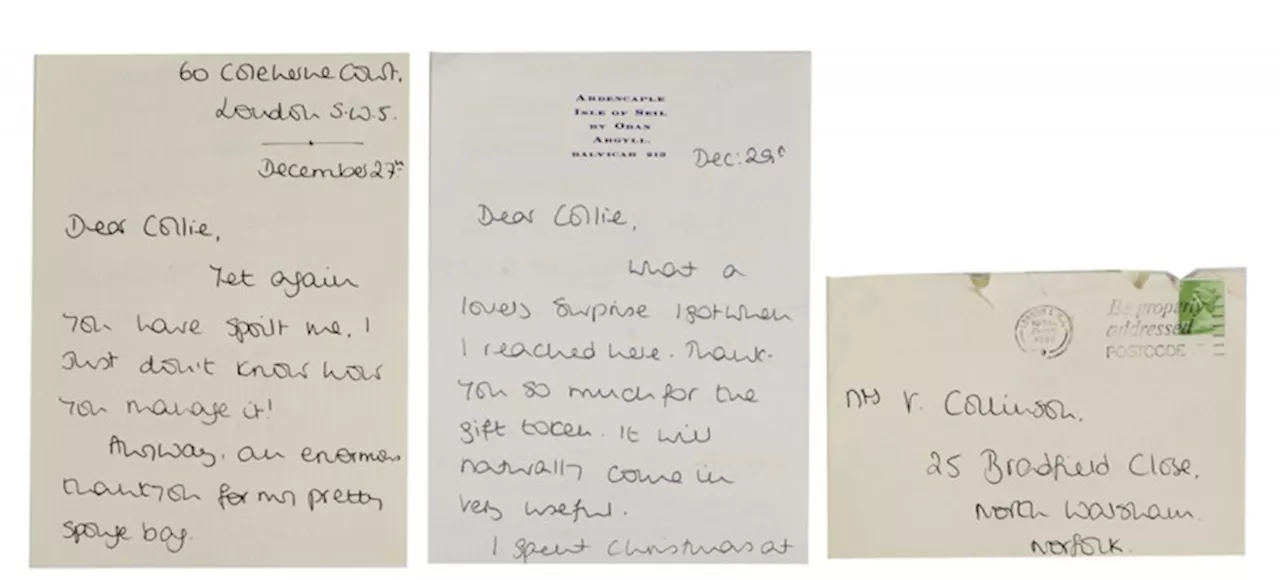 60 Coleherne Court,
London S.W.5.
December 27th
Dear Collie,
Yet again
you have spoilt me. I
just don't know how
you manage it!
Anyway, an enormous
thankyou for my pretty
sponge bag.
ARDENCAPLE
ISLE OF SEIL
BY OBAN
ARGYLL.
BALVICAR 212
Dec: 29th
Dear Collie,
What a
lovely surprise I got when
I reached here. Thank-
you so much for the
gift token. It will
naturally come in
very useful.
I spent Christmas at
Be properly
addressed
POSTCODE
Mrs V. Collinson.
25 Bradfield Close,
North Walsham.
Norfolk.